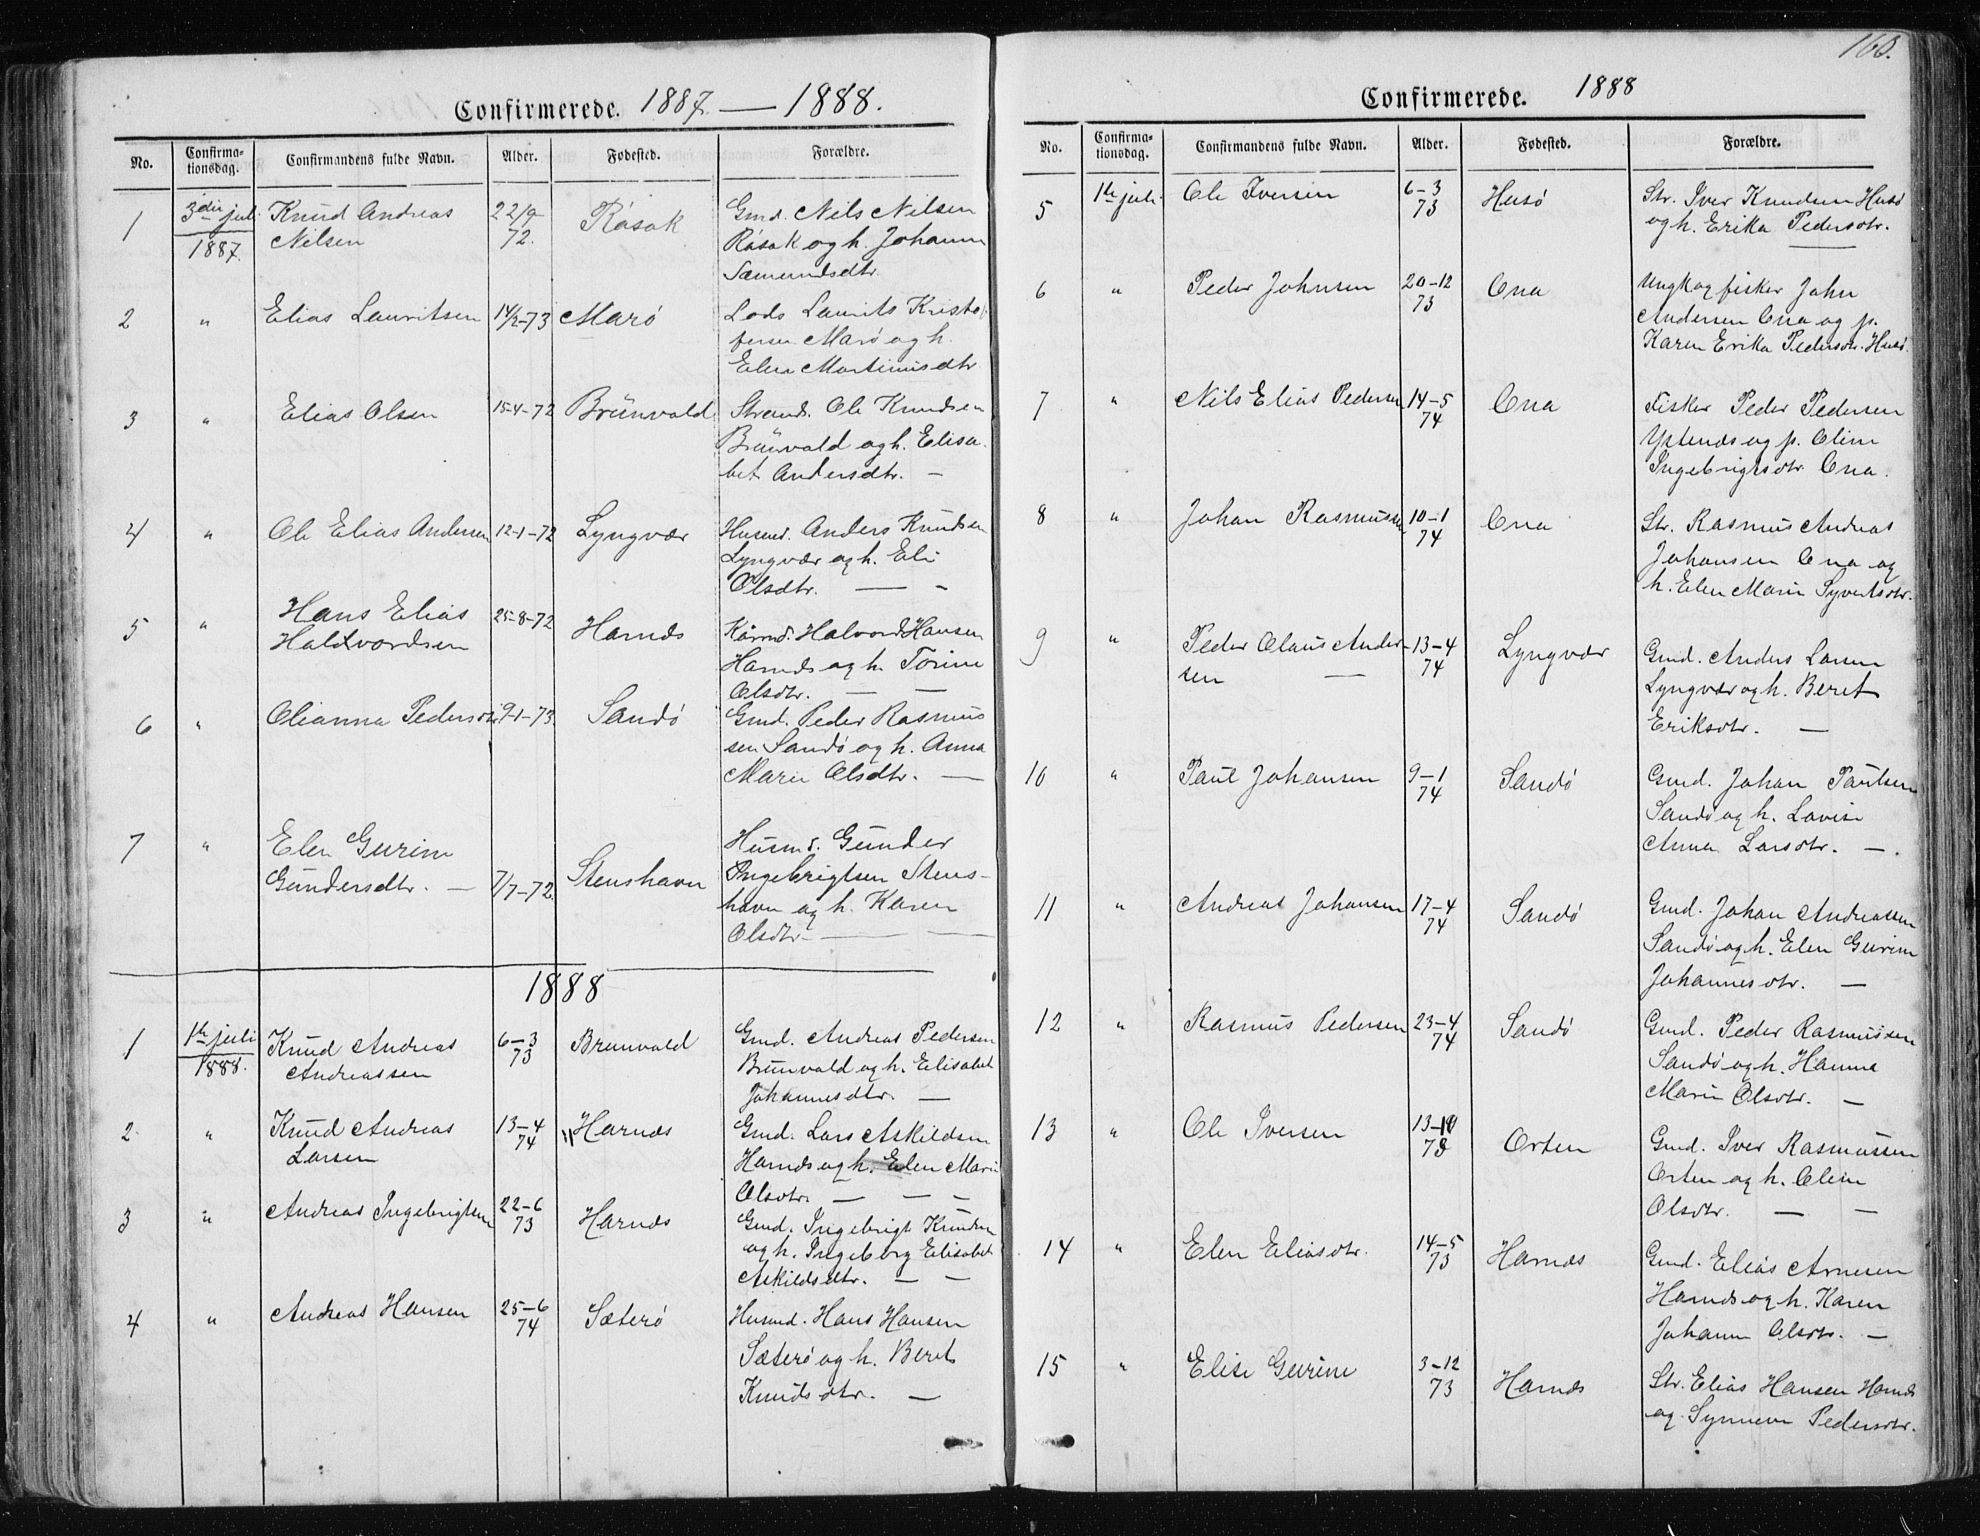 Confirmerede. 1887 — 1888.
No. Confirma-tionsdag. Confirmandens fulde Navn. Alder. Fødested. Forældre.
1 3die juli 1887. Knud Andreas Nilsen 22/9 72. Røsok Gmd. Nils Nilsen
Røsok og h. Johanne
Sæmundsdtr.
2 " Elias Lauritsen 14/2-73 Marø Lods Laurits Kristo-
fersen Marø og h.
Elen Martinusdtr
3 " Elias Olsen 15-4-72 Brünvald Strands. Ole Knudsen
Brünvald og h. Elisa-
bet Andersdtr. —
4 " Ole Elias Andersen 12-1-72 Lyngvær Husmd. Anders Knudsen
Lyngvær og h. Eli
Olsdtr. — -
5 " Hans Elias
Haldvordsen 25-8-72 Harnæs Kårmd. Halvord Hansen
Harnæs og h. Torine
Olsdtr. — —
6 " Olianna Pedersdtr 9-1-73 Sandø Gmd. Peder Rasmus
sen Sandø og h. Anna
Marie Olsdtr. —
7 " Elen Gurine
Gundersdtr. — 7/7-72. Stenshavn Husmd. Gunder
Ingebrigtsen Stens-
havn og h. Karen
Olsdtr. — —
1888
1 1te juli 1888. Knud Andreas
Andreassen 6-3 73 Brunvald Gmd. Andreas Pedersen
Brunvald og h. Elisabet
Johannesdtr. —
2. " Knud Andreas
Larsen 13-4 74 Harnæs Gmd. Lars Askildsen
Harnæs og h. Elen Marie
Olsdtr. — — —
3 " Andreas Ingebrigtsen 22-6 73 Harnæs Gmd. Ingebrigt Knudsen
og h. Ingeborg Elisabet
Askildsdtr. — —
4 " Andreas Hansen 25-6 74 Sæterø Husmd. Hans Hansen
Sæterø og h. Beret
Knudsdtr. —
160.
Confirmerede. 1888
No. Confirma-tionsdag. Confirmandens fulde Navn. Alder. Fødested. Forældre.
5 1te juli Ole Iversen 6-3 73 Husø Str. Iver Knudsen Husø
og h. Erika Pedersdtr.
6 " Peder Johnsen 20-12 73 Ona Ungk og fisker John
Andersen Ona og p.
Karen Erika Pedersdtr. Husø.
7 " Nils Elias Pedersen 14-5 74 Ona Fisker Peder Pedersen
og p. Oline
Ingebrigtsdtr. Ona.
8 " Johan Rasmussen 10-1 74 Ona Str. Rasmus Andreas
Johansen Ona og
h. Elen Marie Syvertsdtr.
9 " Peder Olaus Ander-
sen — 13-4 74 Lyngvær Gmd. Anders Larsen
Lyngvær og h. Beret
Eriksdtr. —
10 " Paul Johansen 9-1 74 Sandø Gmd. Johan Paulsen
Sandø og h. Lovise
Anna Larsdtr. —.
11 " Andreas Johansen 17-4 74 Sandø Gmd. Johan Andreassen
Sandø og h. Elen Gurine
Johannesdtr. —
12 " Rasmus Pedersen 23-4 74 Sandø Gmd. Peder Rasmussen
Sandø og h. Hanna
Marie Olsdtr. —
13 " Ole Iversen 13-10 73 Orten Gmd. Iver Rasmussen
Orten og h. Oline
Olsdtr. — —
14 " Elen Eliasdtr. 14-5 73 Harnæs Gmd. Elias Arnesen
Harnæs og h. Karen
Johanne Olsdtr. —
15 " Elise Gurine 3-12 73 Harnæs Str. Elias Hansen Harnæs
og Synneve Pedersdtr.